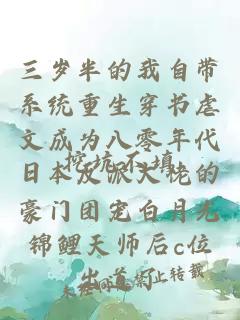 三岁半的我自带
系统重生穿书虐
文成为八零年代
挖坑不填
日本反派大佬的
豪门团宠白月光
锦鲤天师后c位
出道了
禁止转载